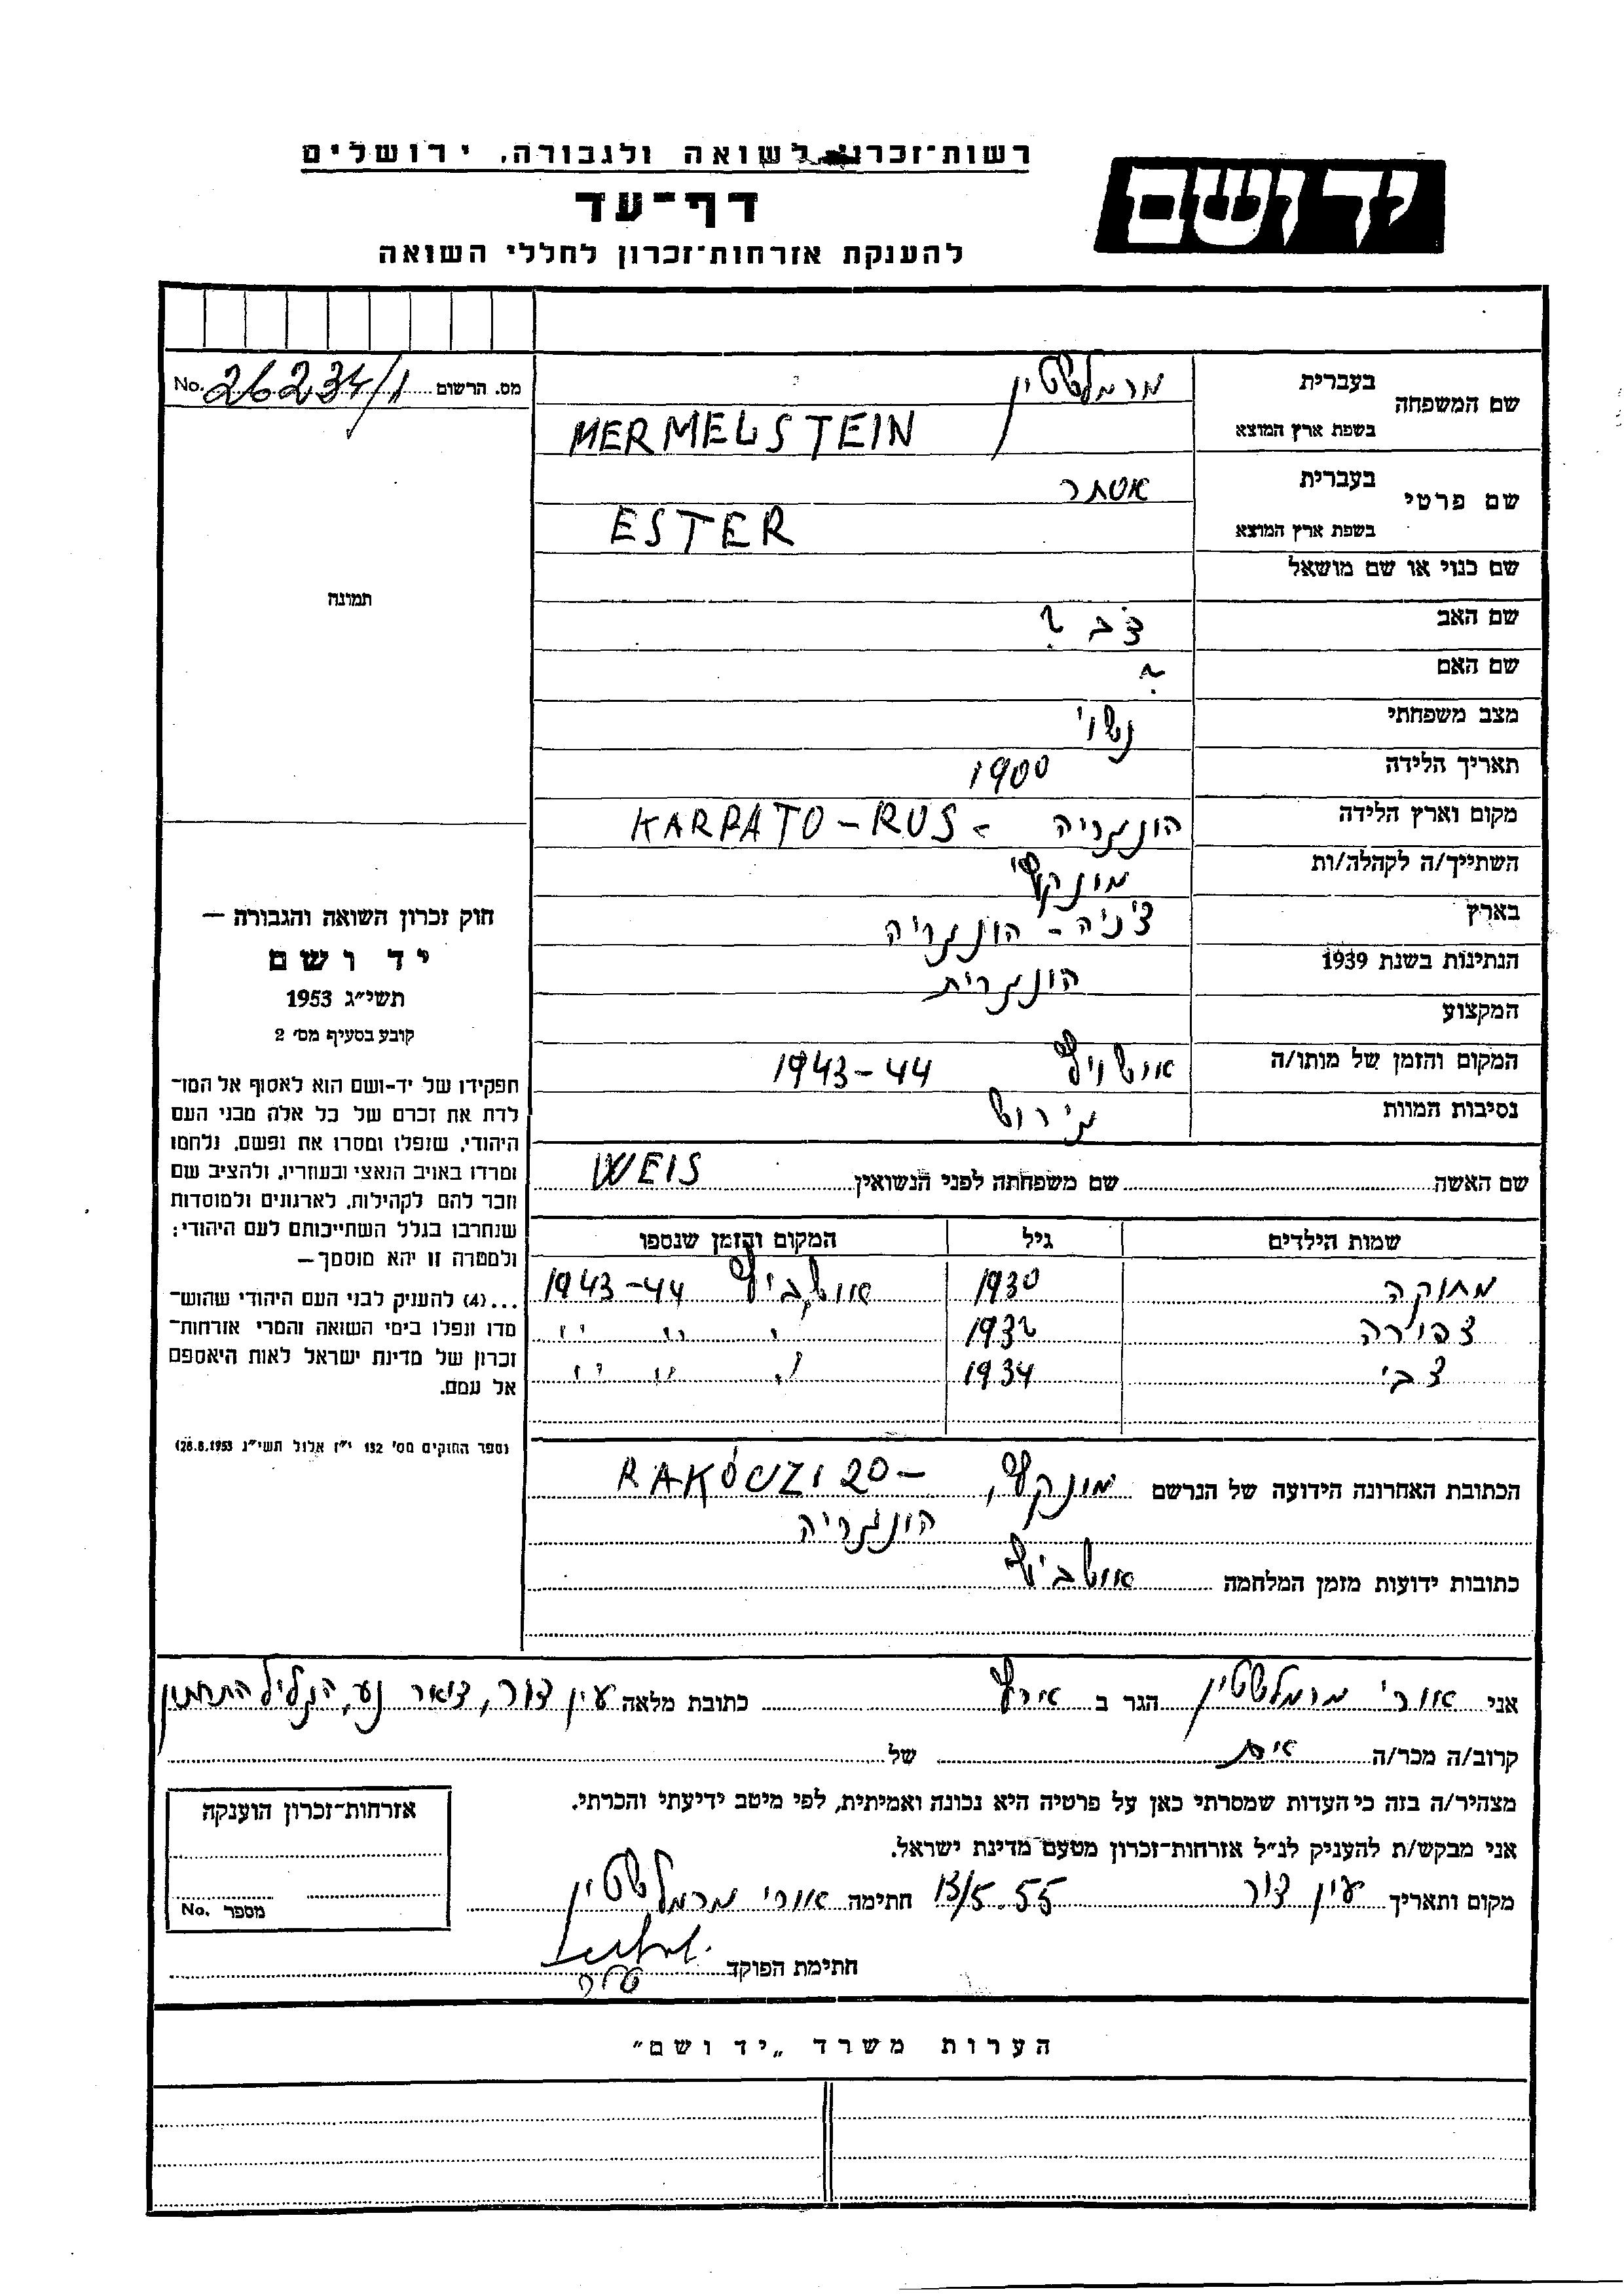 רשות־זכרון לשואה ולגבורה, ירושלים
יד ושם
דף־עד
להענקת אזרחות־זכרון לחללי השואה
מס. הרשום 26234/1 No.
שם המשפחה
בעברית מרמלשטיין
בשפת ארץ המוצא MERMELSTEIN
שם פרטי
בעברית אסתר
בשפת ארץ המוצא ESTER
שם כנוי או שם מושאל
שם האב צבי ?
שם האם ?
מצב משפחתי נשוי
תאריך הלידה 1900
מקום וארץ הלידה הונגריה - KARPATO-RUS
השתייך/ה לקהלה/ות מונקץ'
בארץ צ'כיה - הונגריה
הנתינות בשנת 1939 הונגרית
המקצוע
המקום והזמן של מותו/ה אושויץ 1943-44
נסיבות המוות גירוש
שם האשה שם משפחתה לפני הנשואין WEIS
שמות הילדים גיל המקום והזמן שנספו
1930 אושביץ 1943-44
צפורה 1932 " " "
צבי 1934 " " "
הכתובת האחרונה הידועה של הנרשם מונקץ', RAKÓCZI 20 -
הונגריה
כתובות ידועות מזמן המלחמה אושביץ
תמונה
חוק זכרון השואה והגבורה –
יד ושם
תשי"ג 1953
קובע בסעיף מס' 2
תפקידו של יד-ושם הוא לאסוף אל המו־
לדת את זכרם של כל אלה מבני העם
היהודי, שנפלו ומסרו את נפשם, נלחמו
ומרדו באויב הנאצי ובעוזריו, ולהציב שם
וזכר להם לקהילות, לארגונים ולמוסדות
שנחרבו בגלל השתייכותם לעם היהודי;
ולמטרה זו יהא מוסמך –
...(4) להעניק לבני העם היהודי שהוש־
מדו ונפלו בימי השואה והמרי אזרחות־
זכרון של מדינת ישראל לאות היאספם
אל עמם.
(ספר החוקים מס' 132 י"ז אלול תשי"ג 28.8.1953)
אני אורי מרמלשטיין הגר ב ארץ כתובת מלאה עין דור, דואר נע, הגליל התחתון
קרוב/ה מכר/ה של
מצהיר/ה בזה כי העדות שמסרתי כאן על פרטיה היא נכונה ואמיתית, לפי מיטב ידיעתי והכרתי.
אני מבקש/ת להעניק לנ"ל אזרחות־זכרון מטעם מדינת ישראל.
מקום ותאריך עין דור 13/5.55 חתימה אורי מרמלשטיין
חתימת הפוקד
אזרחות־זכרון הוענקה
מספר No.
הערות משרד „יד ושם"